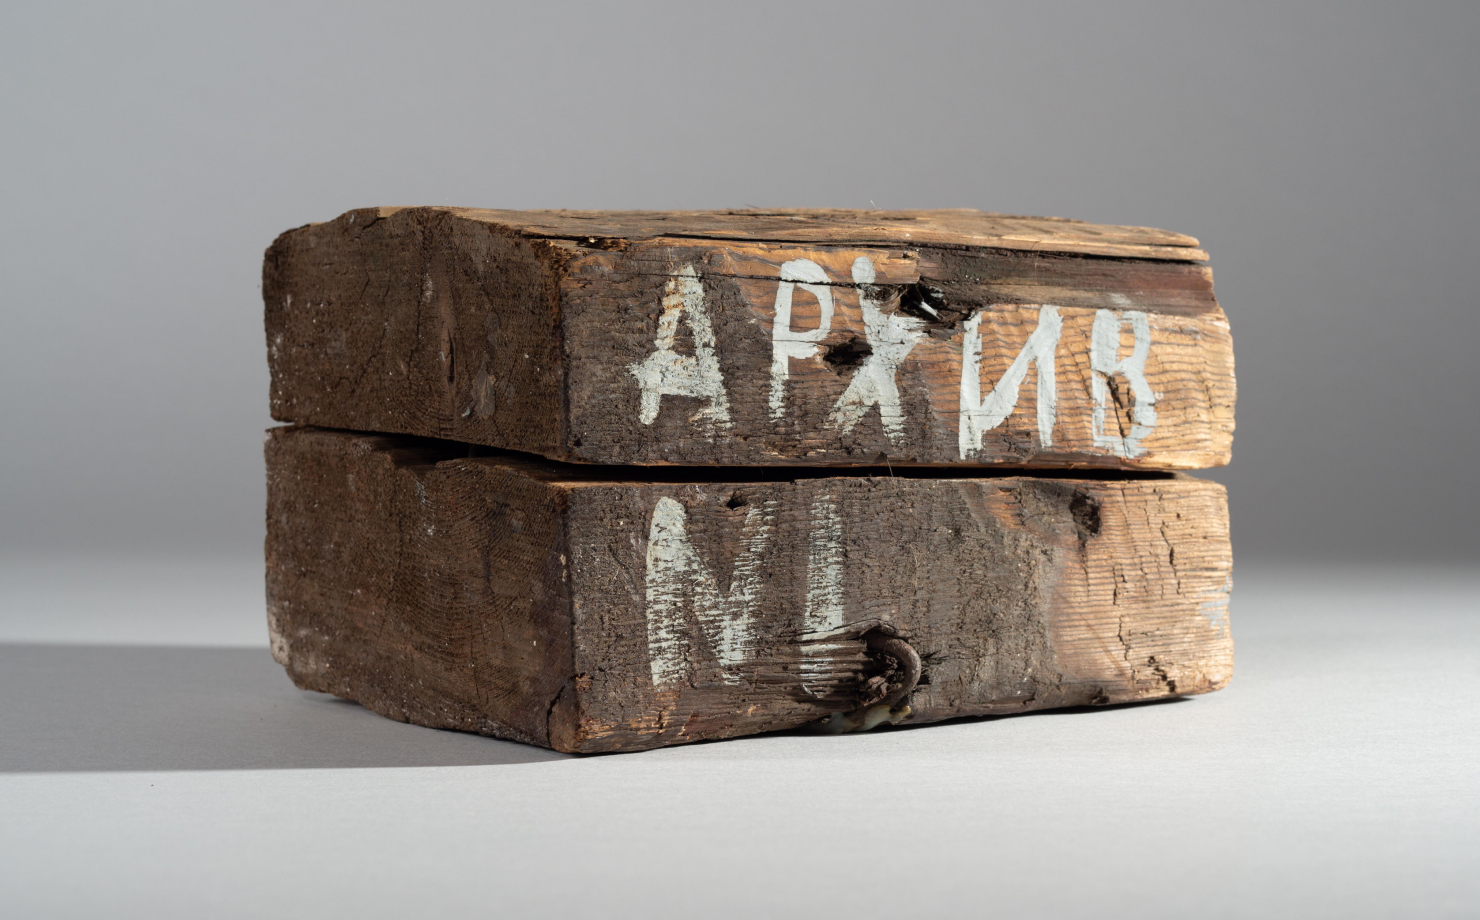 АРХИВ
N1